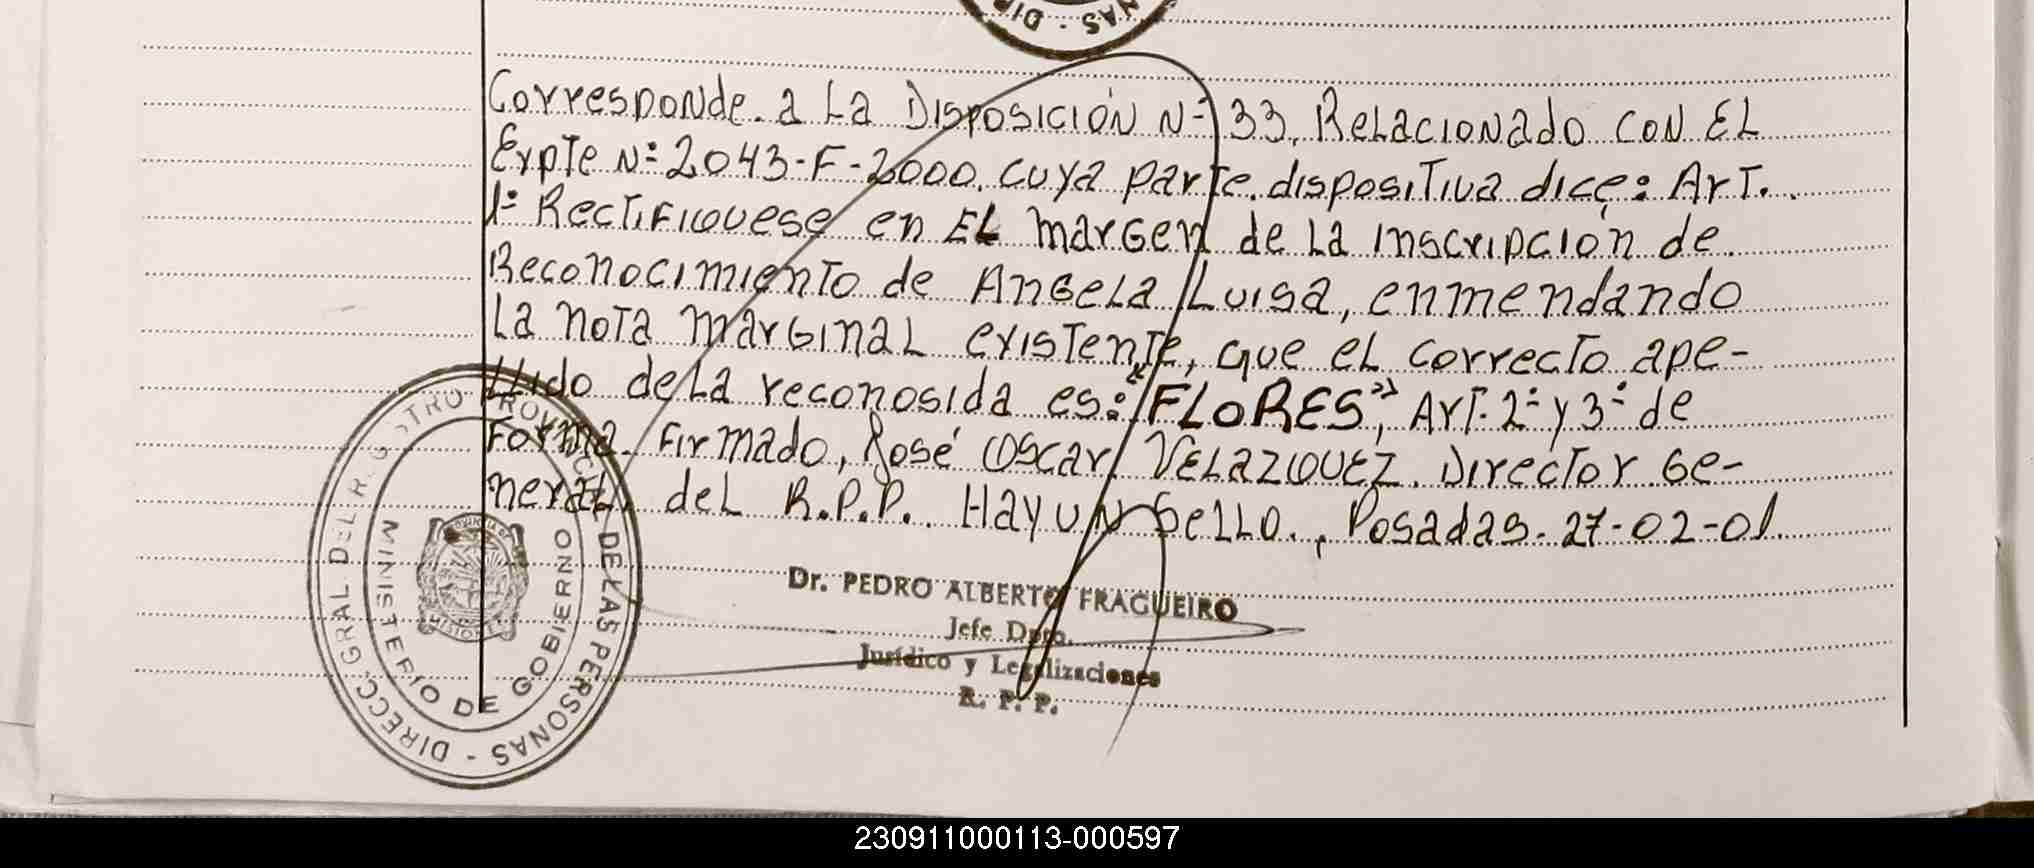 DIR - S AS
Corresponde. a La Disposición N= 33, Relacionado con EL
ExpTe N= 2043-F-2000. cuya parte dispositiva dice: Art.
1= Rectifiquese en EL margen de La inscripción de
Reconocimiento de Angela Luisa, enmendando
La nota marginal existente, que el correcto ape-
LLido de La reconosida es: "FLORES", Art. 2= y 3= de
Forma. Firmado, José Oscar VELAZQUEZ. Director Ge-
neral, del R.P.P. Hay un Sello., Posadas. 27-02-01.
DIRECC. GRAL DEL REGISTRO PROVINCIAL DE LAS PERSONAS -
MINISTERIO DE GOBIERNO
Dr. PEDRO ALBERTO FRAGUEIRO
Jefe Dpto.
Jurídico y Legalizaciones
R. P. P.
230911000113-000597